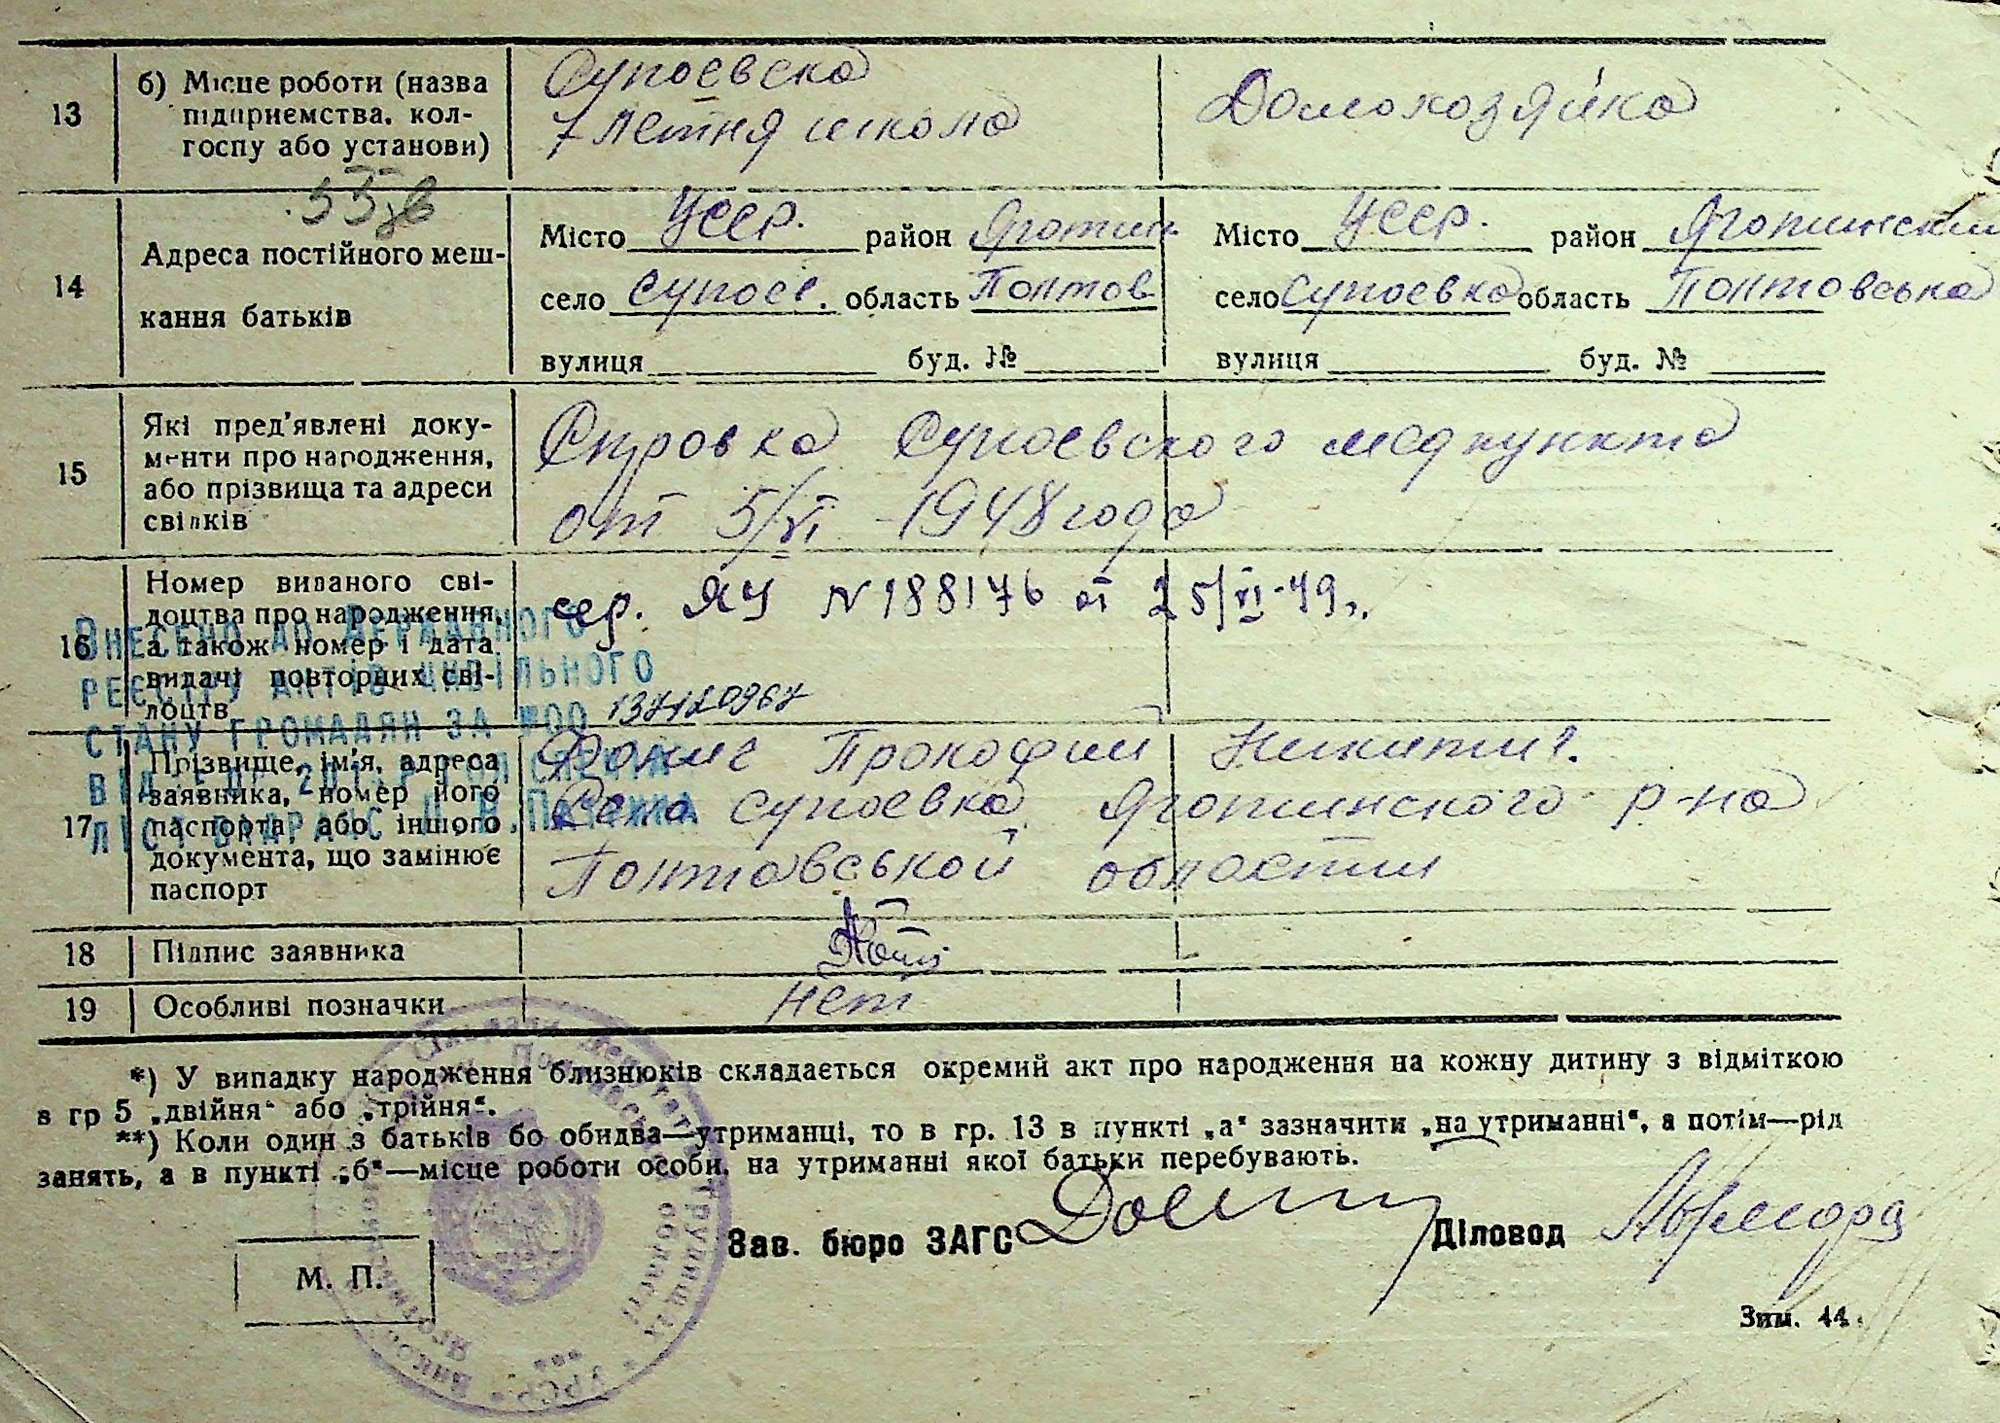 13
б) Місце роботи (назва
підприємства, кол-
госпу або установи)
Супоевска
7 летня школа
Домохозяйка
14
Адреса постійного меш-
кання батьків
Місто Усср. район Яготин
село Супоев. область Полтов
вулиця буд. №
Місто Усср. район Яготинский
село Супоевка область Полтовська
вулиця буд. №
15
Які пред'явлені доку-
менти про народження,
або прізвища та адреси
свідків
Справка Супоевского медпункта
от 5/VI - 1948 года
16
Номер виданого сві-
доцтва про народження,
а також номер і дата
видачі повторних сві-
доцтв
сер. ЯУ N 188176 от 25/VI-49г.
Внесено до Державного
реєстру актів цивільного
стану громадян за №00
17
Прізвище, ім'я, адреса
заявника, номер його
паспорта або іншого
документа, що замінює
паспорт
Прокофий Никитич.
Село Супоевка Яготинского р-на
Полтовськой области
18
Підпис заявника
19
Особливі позначки
нет
*) У випадку народження близнюків складається окремий акт про народження на кожну дитину з відміткою
в гр 5 „двійня“ або „трійня“.
**) Коли один з батьків бо обидва—утриманці, то в гр. 13 в пункті „а“ зазначити „на утриманні“, а потім—рід
занять, а в пункті „б“—місце роботи особи, на утриманні якої батьки перебувають.
Зав. бюро ЗАГС
Діловод
М. П.
Зим. 44